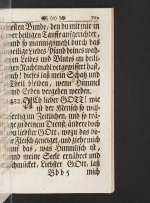 esten Bunde, den du mit mir in
er heiligen Tauffe aufgerichtet,
nd so mannigmahl durch das
eilige Liebes-Pfand deines wah-
en Leibes und Blutes im heili-
en Nachtmahl vergewissert hast,
ch! dieses laß mein Schatz und
Theil bleiben, wenn Himmel
nd Erden vergehen werden.
Ach lieber GOTT! wie
ist der Mensch so will-
ertig im Zeitlichen, und so träg-
zu deinem Dienst, ändere doch
liebster Gott, wozu das bö-
Fleisch geneiget, und ziehe mich
was Himmlisch ist,
nd meine Seele ernähret und
chmücket. Liebster Gott, laß
Bbb 5 mich